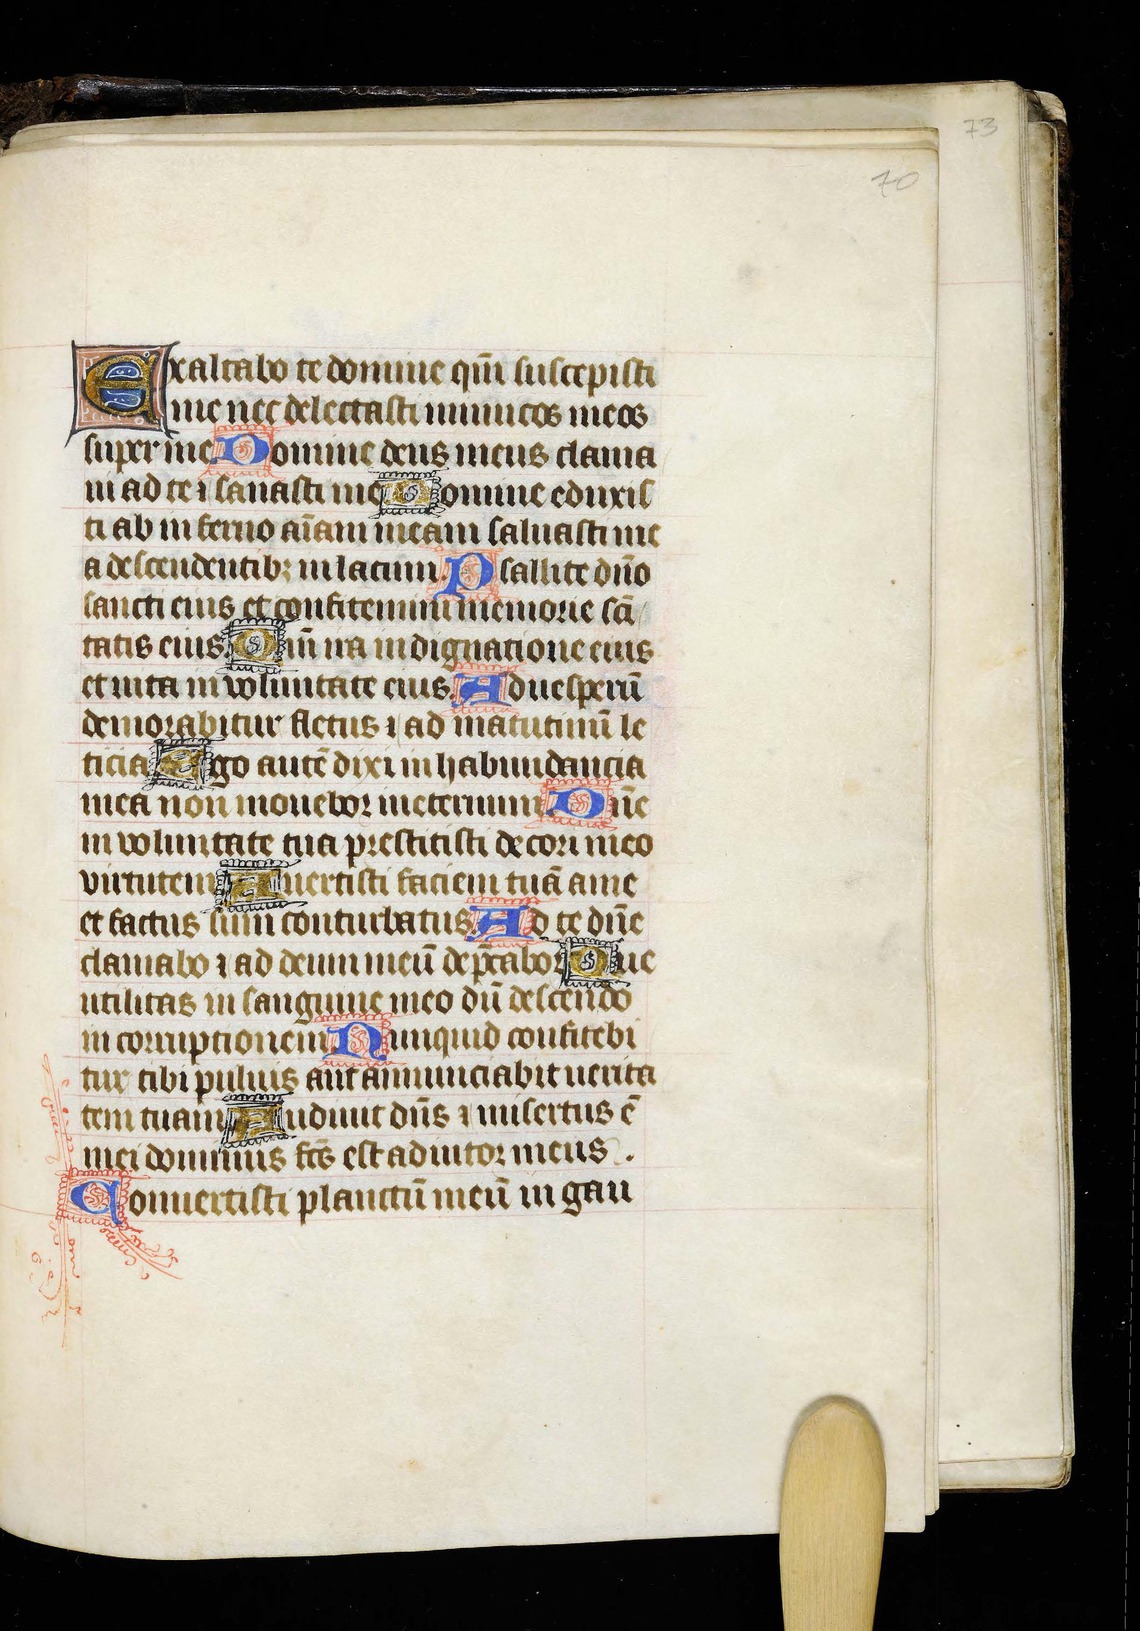 73
70
Exaltabo te domine qm̄ suscepisti
me nec delectasti inimicos meos
super me Domine deus meus clama
ui ad te ⁊ sanasti me Domine eduxis
ti ab inferno aīam meam saluasti me
a descendentibꝫ in lacum. Psallite dn̄o
sancti eius et confitemini memorie scā
tatis eius. Qm̄ ira in dignatione eius
et uita in voluntate eius. Ad uesperū
demorabitur fletus ⁊ ad matutinū le
ticia Ego autē dixi in habundancia
mea non mouebor in eternum. Dn̄e
in voluntate tua prestitisti decori meo
virtutem Auertisti faciem tuā a me
et factus sum conturbatus Ad te dn̄e
clamabo ⁊ ad deum meū dep̄cabor Que
utilitas in sanguine meo dū descendo
in corruptionem Nunquid confitebi
tur tibi puluis aut annunciabit uerita
tem tuam Audiuit dn̄s ⁊ misertus ē
mei dominus fc̄s est adiutor meus .
Conuertisti planctū meū in gau